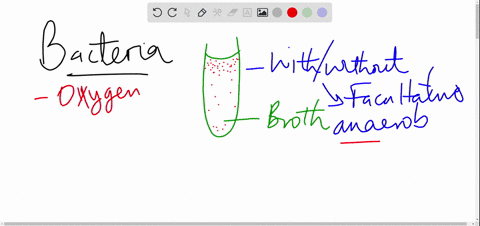 Bacteria
- Oxygen
- With/without
Facultative
Broth anaerob